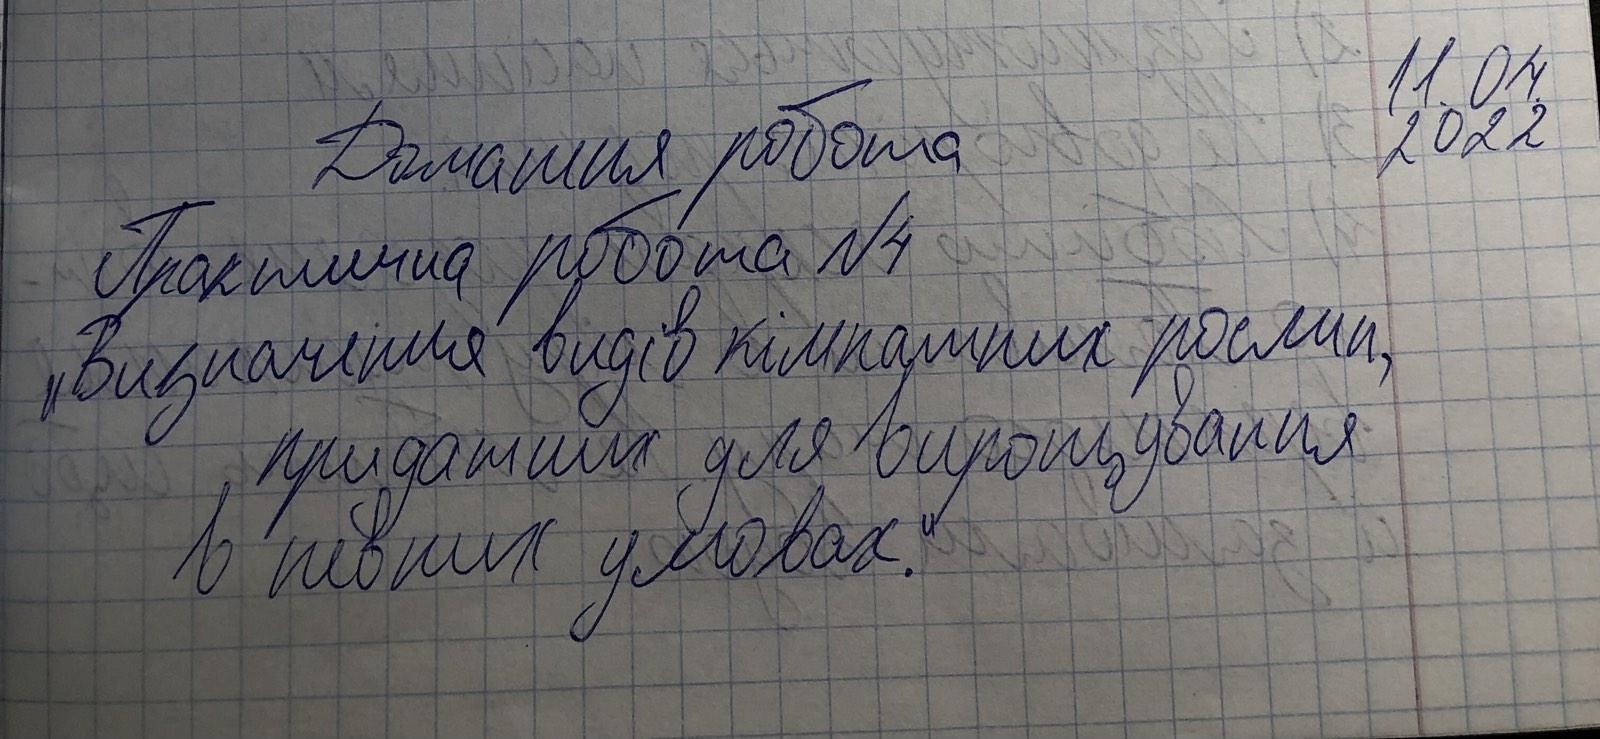 11.04.
2022
Домашня робота
Практична робота №4
„Визначення видів кімнатних рослин,
придатних для вирощування
в певних умовах."